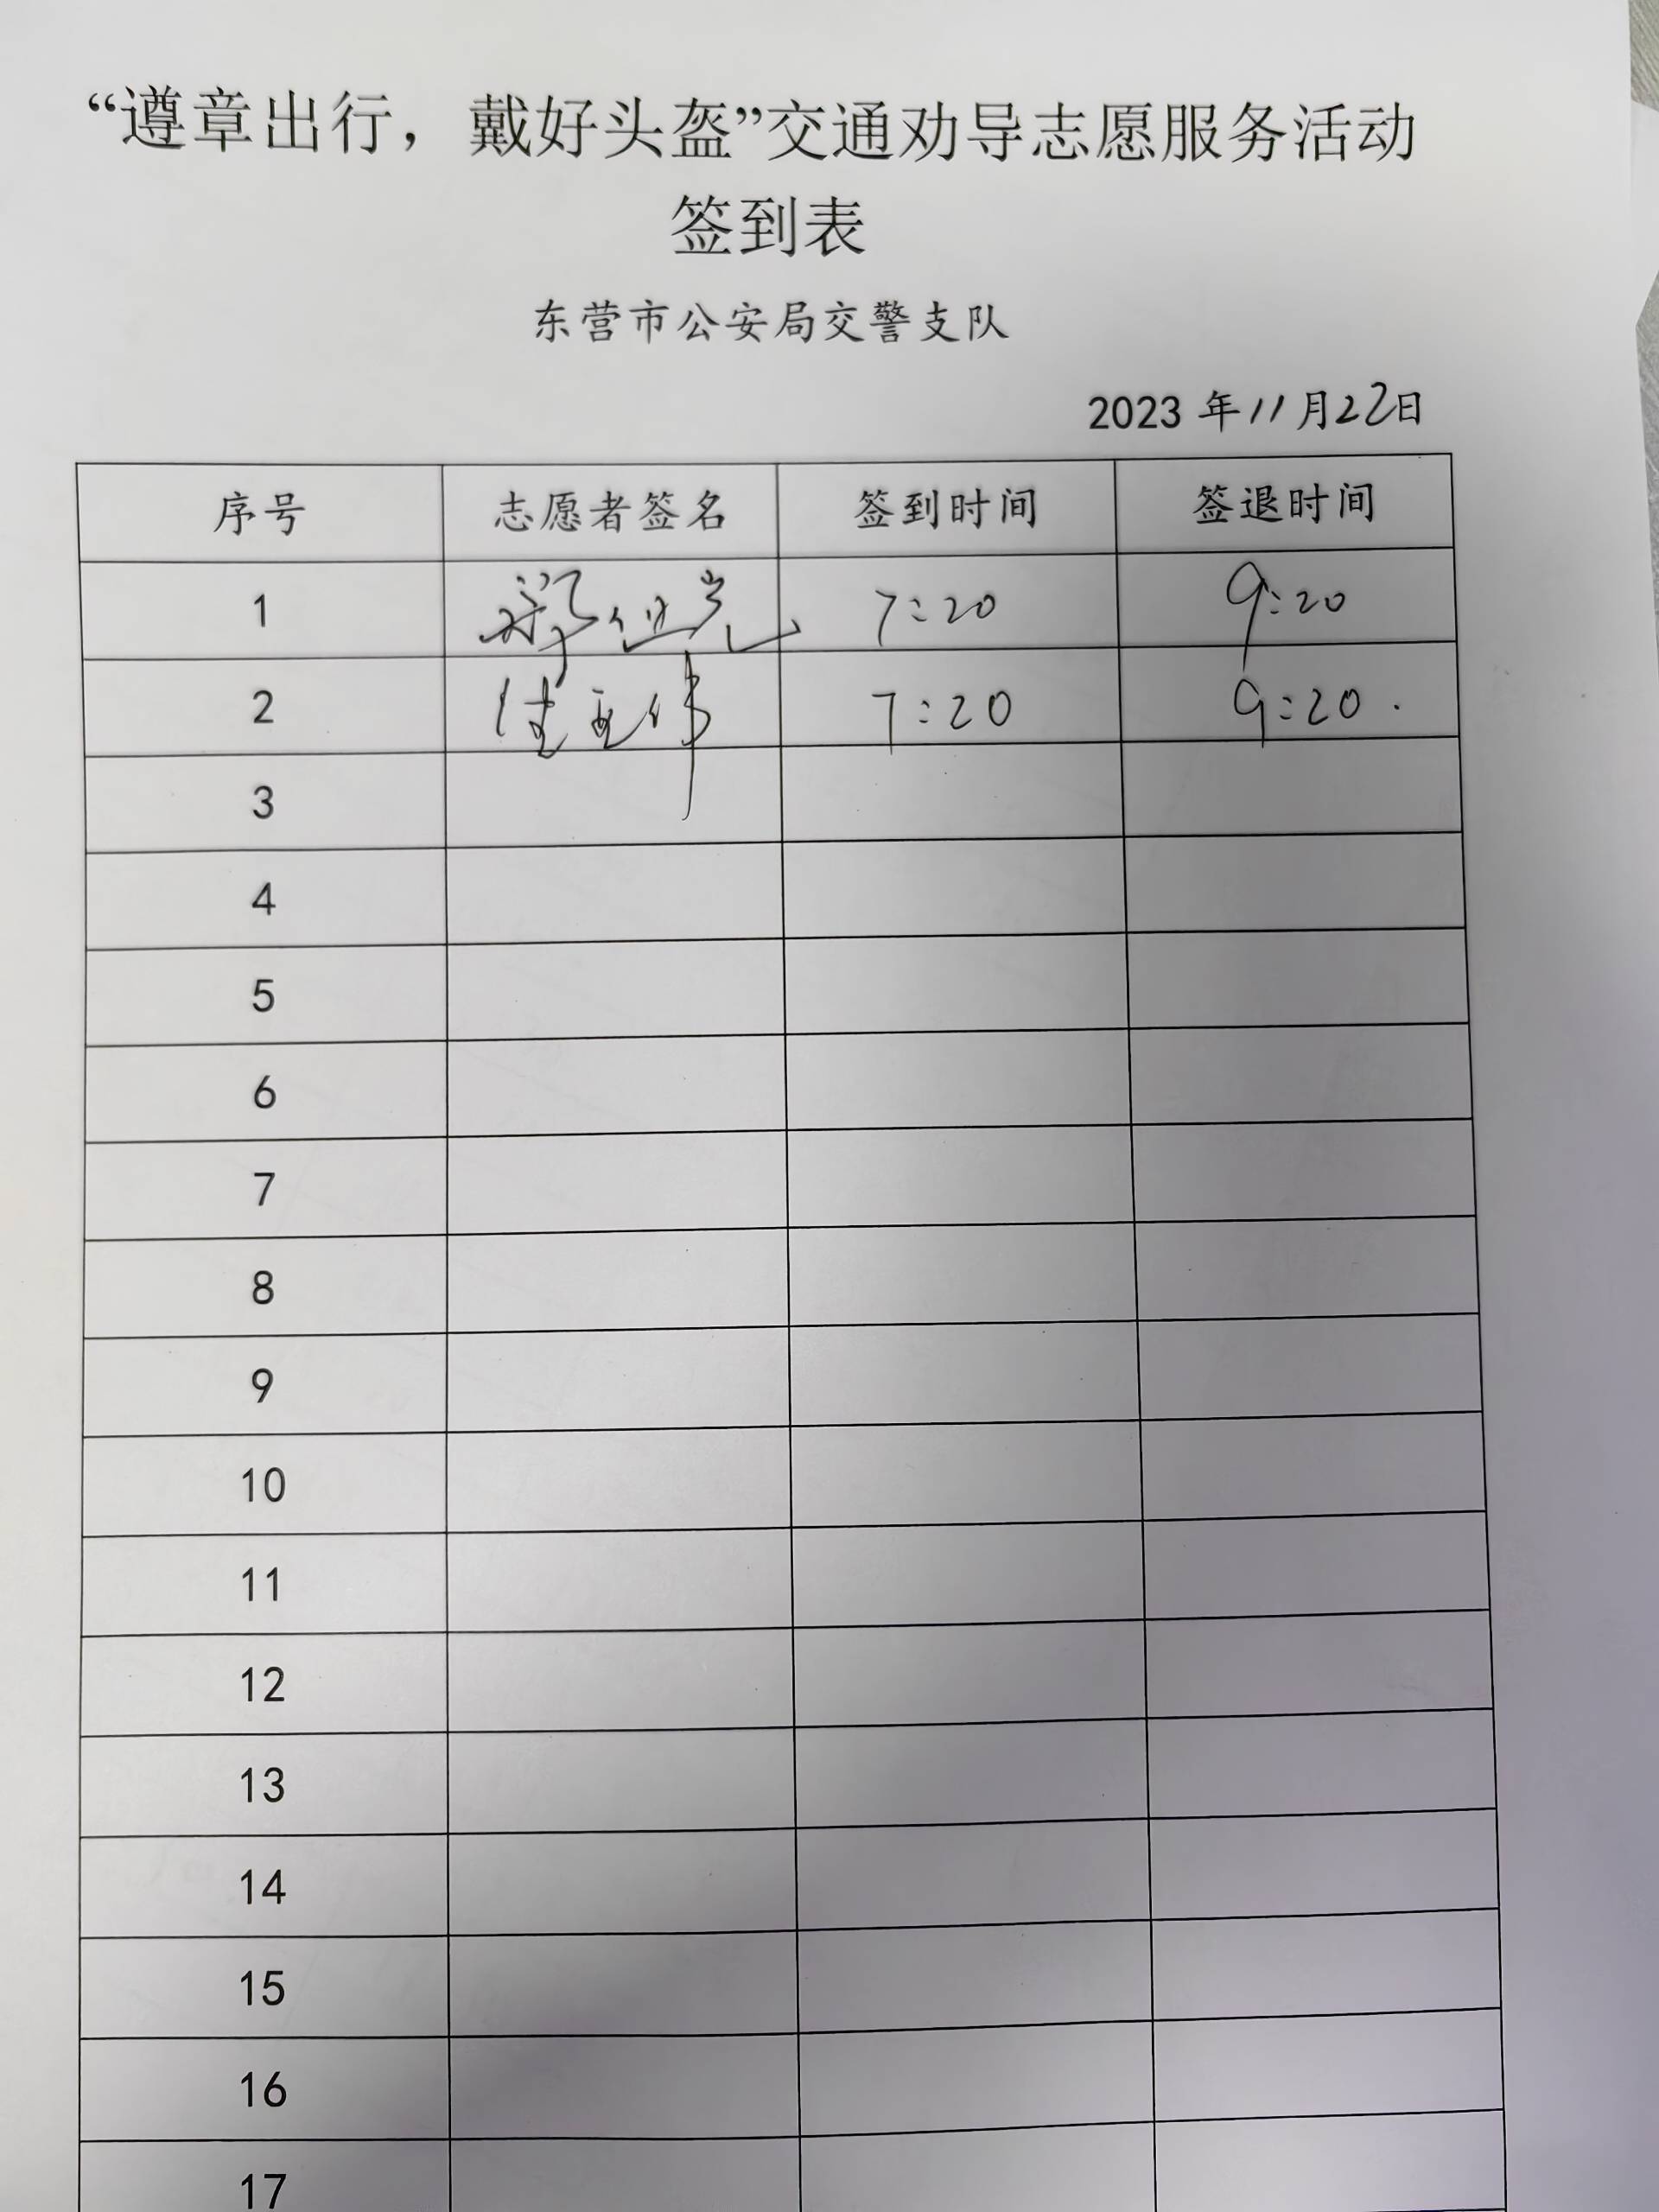 “遵章出行，戴好头盔”交通劝导志愿服务活动
签到表
东营市公安局交警支队
2023 年 11 月 22 日
序号 志愿者签名 签到时间 签退时间
1 7:20 9:20
2 7:20 9:20
3
4
5
6
7
8
9
10
11
12
13
14
15
16
17